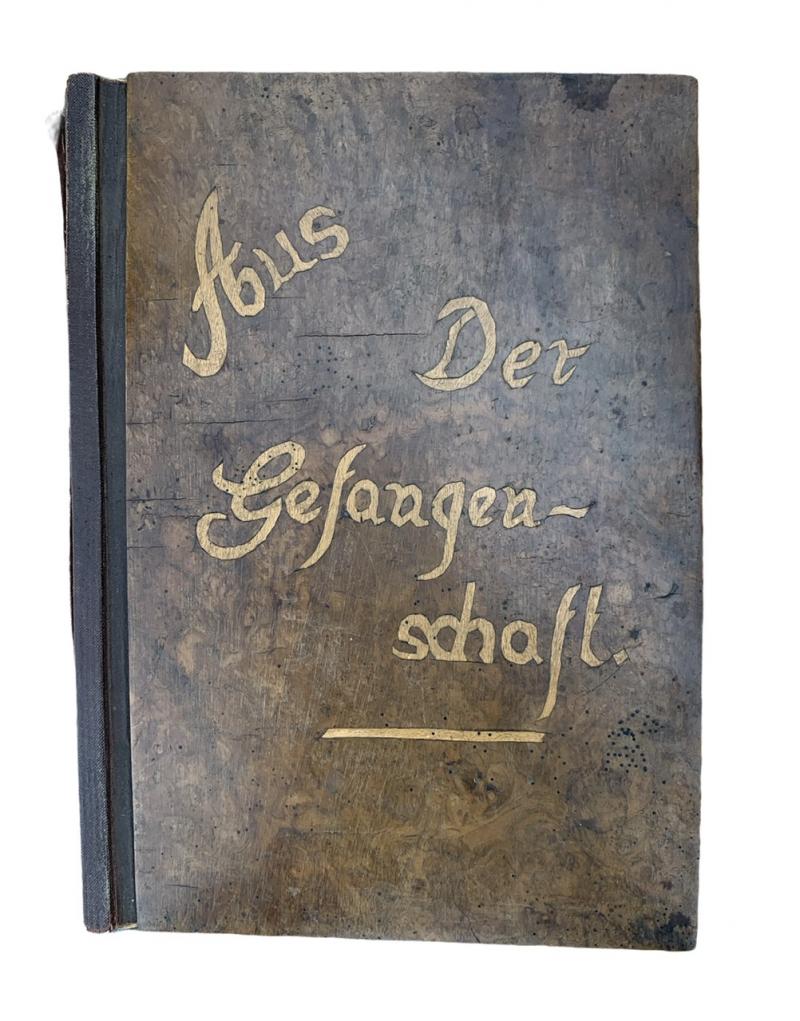 Aus
Der
Gefangen-
schaft.